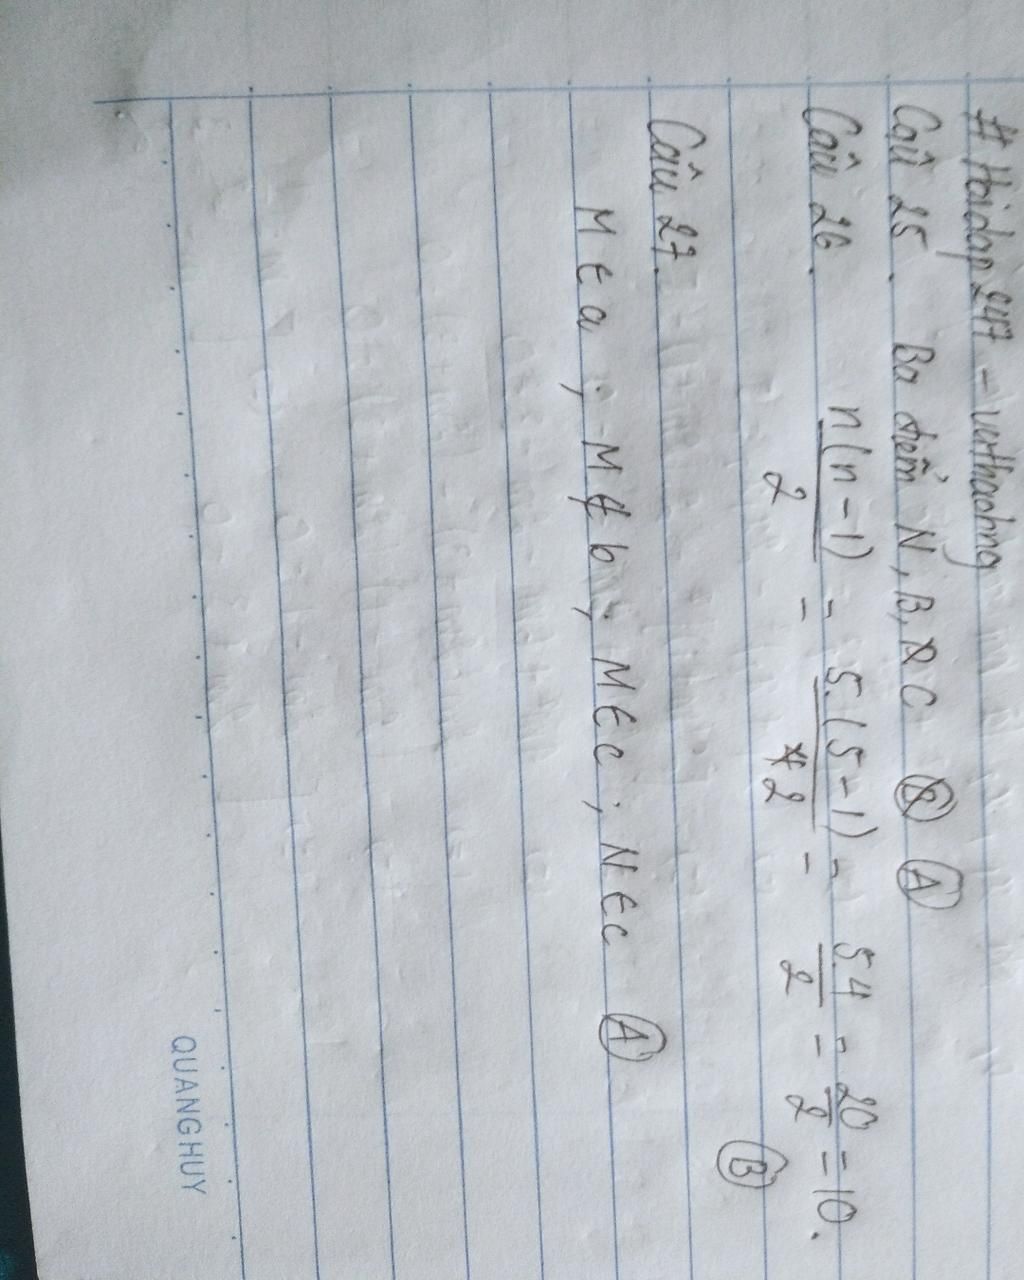 # Hoidap 247 -
Câu 25. Ba điểm N, B, C (A)
Câu 26. n(n-1)/2 = 5.(5-1)/2 = 5.4/2 = 20/2 = 10.
(B)
Câu 27.
M ∈ a ; M ∉ b ; M ∈ c ; N ∈ c (A)
QUANG HUY